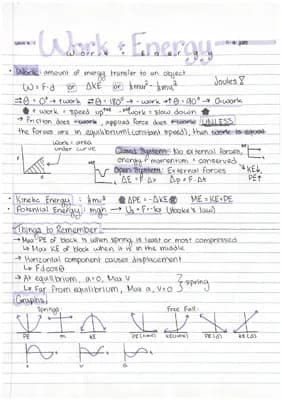 Work + Energy
Work: amount of energy transfer to an object
W = F·d or ΔKE or ½mv² - ½mv² Joules
θ = 0° → +work θ = 180° → -work θ = 90° → 0 work
+work = speed up -work = slow down
→ Friction does -work, applied force does +work (UNLESS
the forces are in equilibrium (constant speed), then work is equal
Work = area
under curve
Closed System: No external forces,
energy + momentum = conserved
Open System: External Forces
↓KE,
PE↑
ΔE = F·Δx Δp = F·Δt
Kinetic Energy: ½mv² ΔPE = -ΔKE ME = KE + PE
Potential Energy: mgh → (Hooke's law)
Things to Remember
→ Max PE of block is when spring is least or most compressed
↳ Max KE of block when it is in the middle
→ Horizontal component causes displacement
↳ Fdcosθ
→ At equilibrium, a=0, Max V
↳ Far from equilibrium, Max a, V=0
spring
Graphs:
Springs: Free Fall:
PE m KE PE (time) KE (time) PE (d) KE (d)
v a